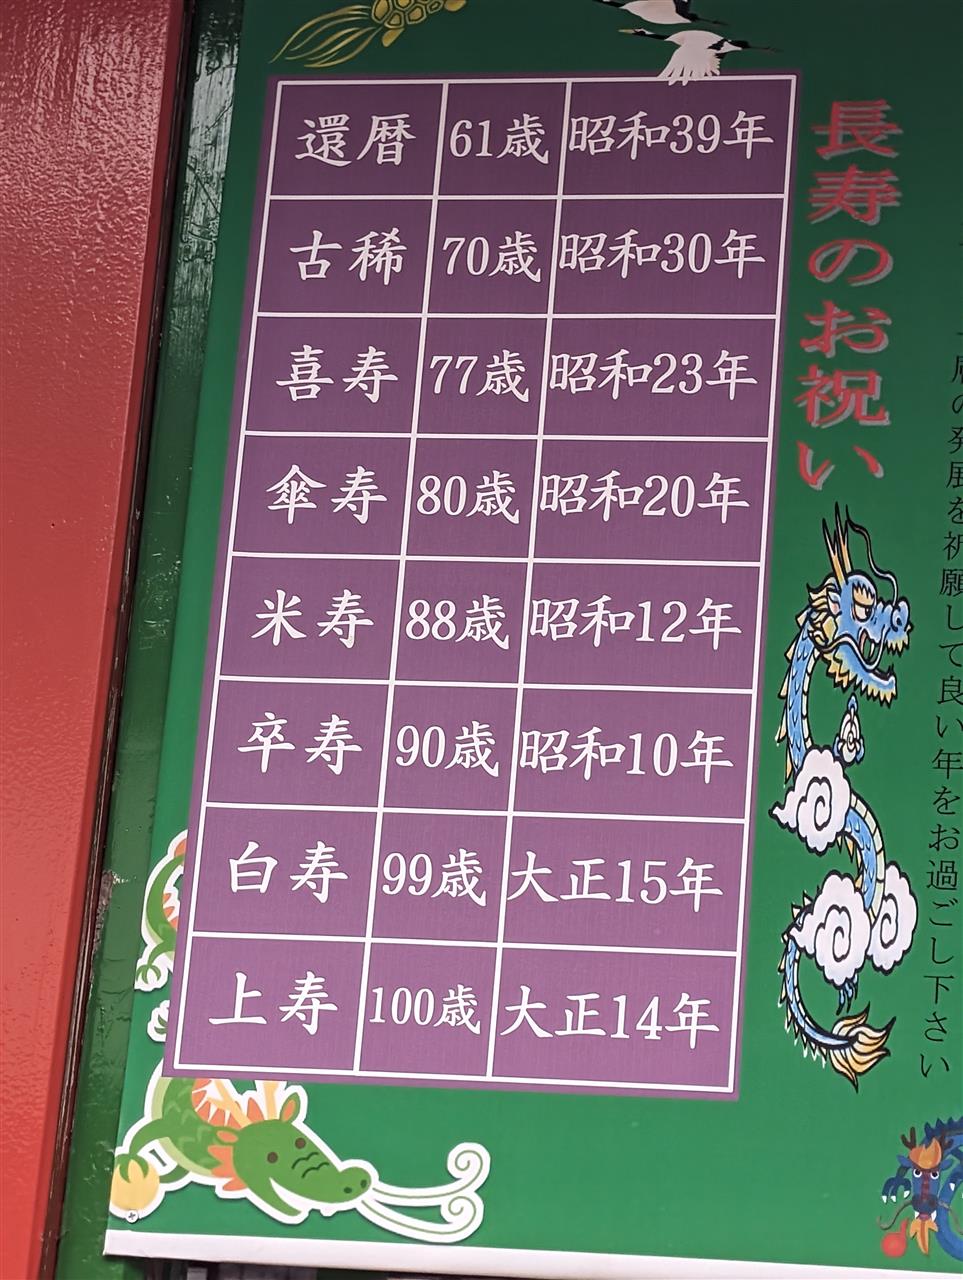 長寿のお祝い
還暦 61歳 昭和39年
古稀 70歳 昭和30年
喜寿 77歳 昭和23年
傘寿 80歳 昭和20年
米寿 88歳 昭和12年
卒寿 90歳 昭和10年
白寿 99歳 大正15年
上寿 100歳 大正14年
の発展を祈願して良い年をお過ごし下さい